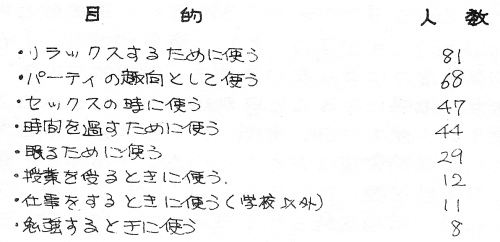 目的 人数
・リラックスするために使う 81
・パーティの趣向として使う 68
・セックスの時に使う 47
・時間を過すために使う 44
・眠るために使う 29
・授業を受るときに使う. 12
・仕事をするときに使う(学校以外) 11
・勉強するときに使う 8